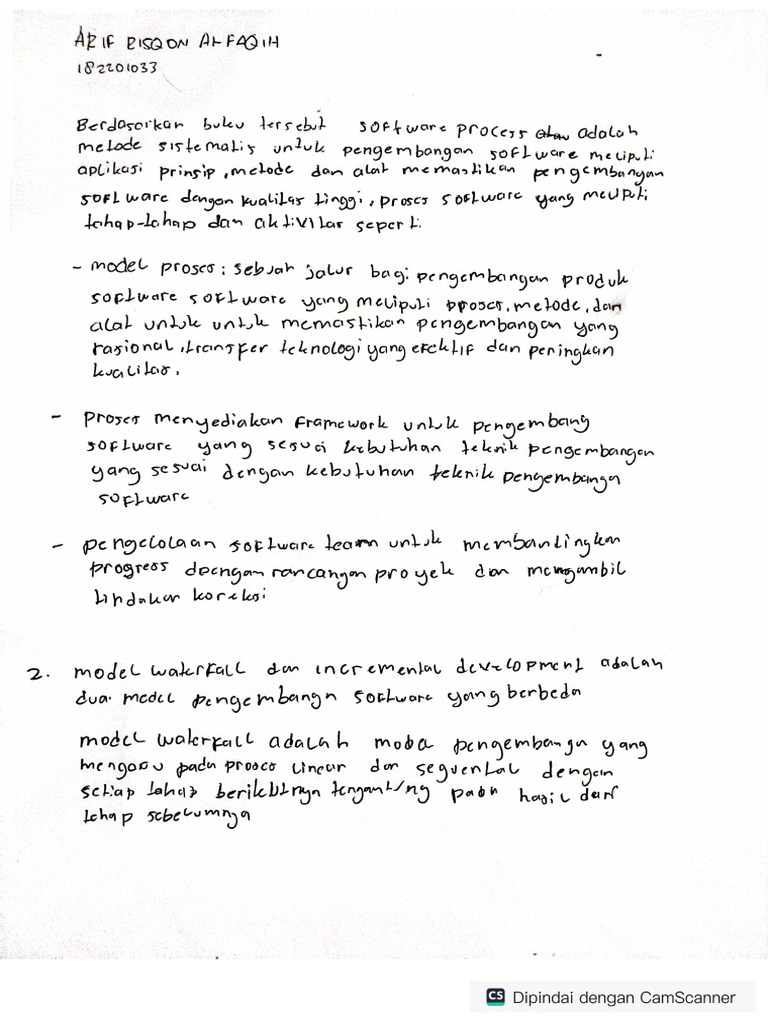 ARIF RISQON ALFAQIH
182201033
Berdasarkan buku tersebut software process adalah
metode sistematis untuk pengembangan software meliputi
aplikasi prinsip, metode dan alat memastikan pengembangan
software dengan kualitas tinggi, proses software yang meliputi
tahap-tahap dan aktivitas seperti.
- model proses: sebuah jalur bagi pengembangan produk
software software yang meliputi proses, metode, dan
alat untuk untuk memastikan pengembangan yang
rasional, transfer teknologi yang efektif dan peningkan
kualitas.
- proses menyediakan framework untuk pengembang
software yang sesuai kebutuhan teknik pengembangan
yang sesuai dengan kebutuhan teknik pengembanga
software
- pengelolaan software team untuk membandingkan
progress dengan rancangan proyek dan mengambil
tindakan koreksi
2. model waterfall dan incremental development adalah
dua model pengembangn software yang berbeda
model waterfall adalah pengembangn yang
mengacu pada proses linear dan sequental dengan
setiap tahap berikutnya pada hasil dari
tahap sebelumnya
CS Dipindai dengan CamScanner